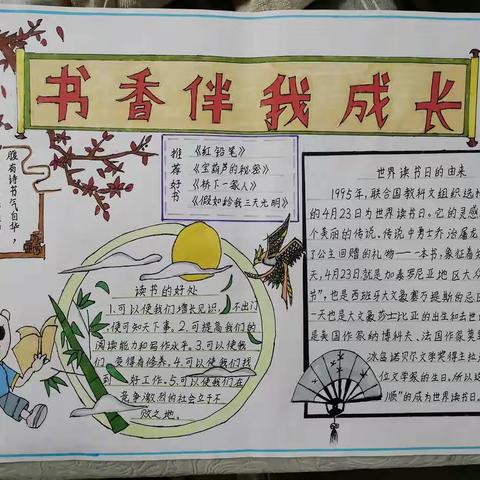 书香伴我成长
腹有诗书气自华,
推荐好书
《红铅笔》
《宝葫芦的秘密》
《桥下一家人》
《假如给我三天光明》
读书的好处
1.可以使我们增长见识,不出门
便可知天下事。2.可提高我们的
阅读能力和写作水平。3.可以使我
们变得有修养。4.可以使我们找
到一好工作。5.可以使我们在
竞争激烈的社会立于不
败之地。
世界读书日的由来
1995年,联合国教科文组织选
的4月23日为世界读书日。它的灵感
个美丽的传说。传说中勇士乔治屠龙
了公主回赠的礼物——一本书,象征着
天,4月23日就是加泰罗尼亚地区大众
节",也是西班牙大文豪塞万提斯的忌日
一天也是大文豪莎士比亚的出生和去世
是美国作家纳博科夫、法国作家莫
冰岛诺贝尔文学奖得主拉
位文学家的生日。所以这
顺"的成为世界读书日。